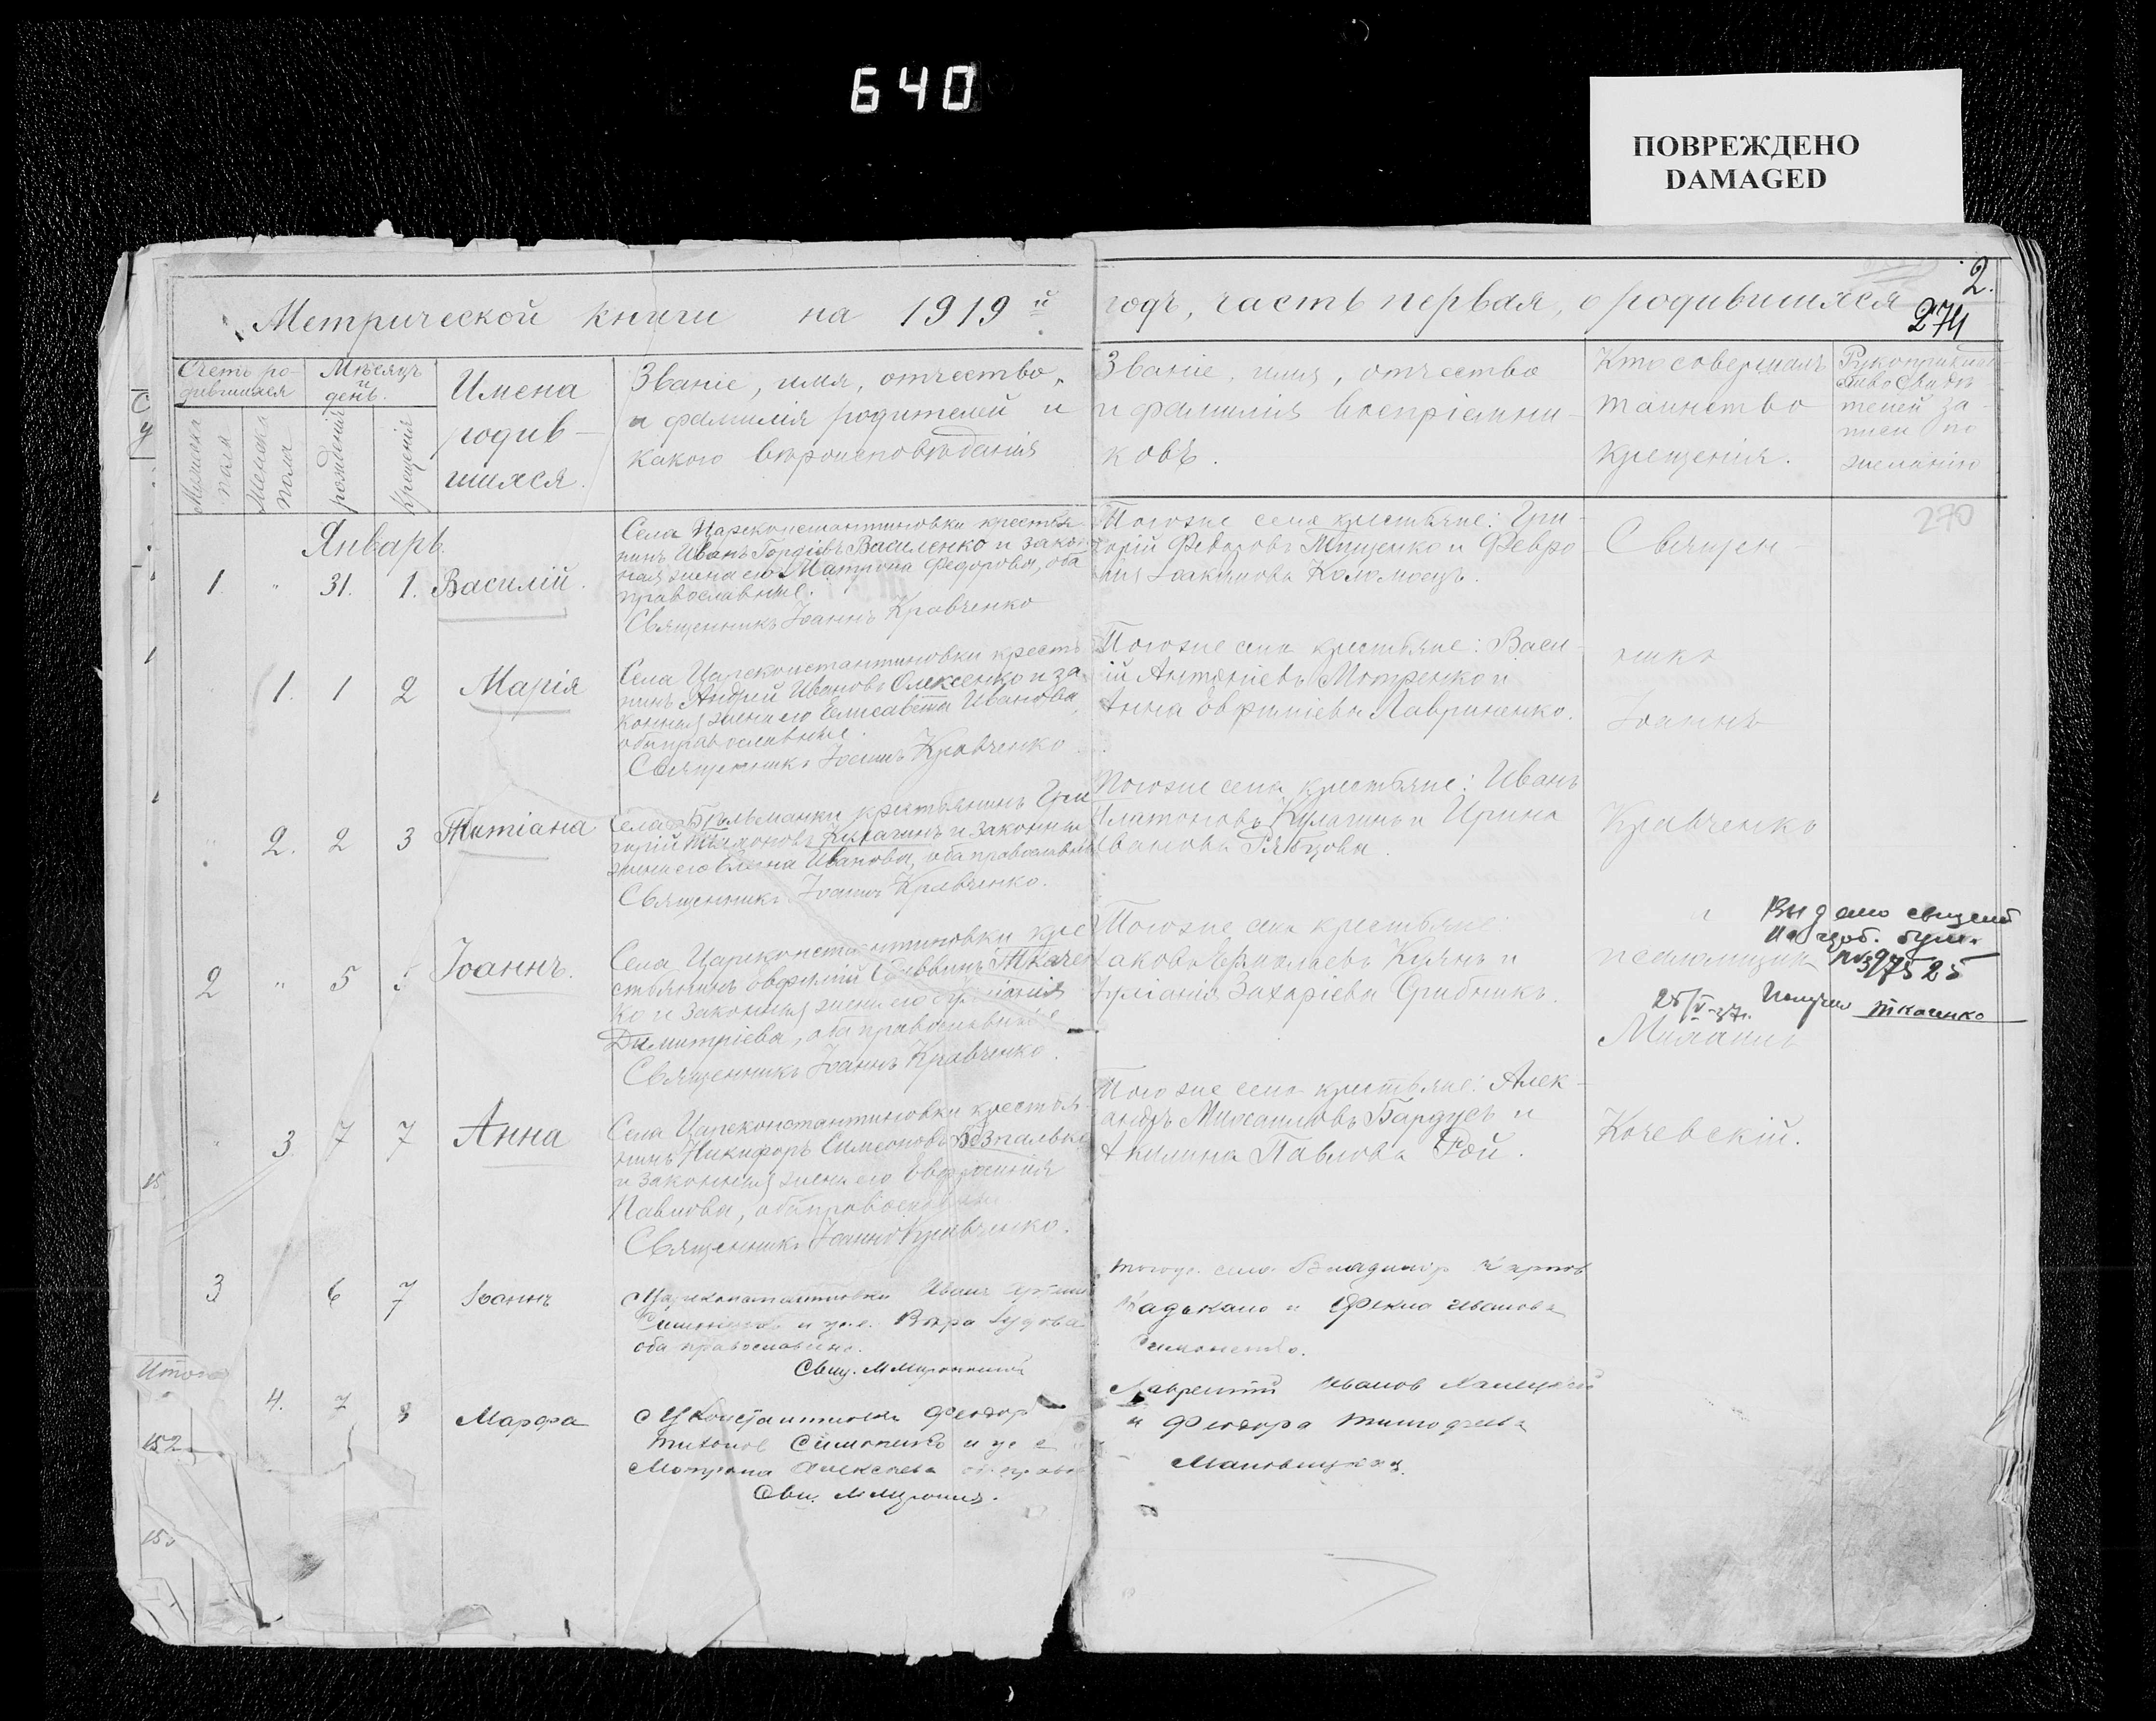 640
ПОВРЕЖДЕНО
DAMAGED
2.
274
Метрической книги на 1919й
годъ, часть первая, о родившихся
Счетъ ро-
дившихся
Мѣсяцъ
и
день.
Мужска
пола
Женска
пола
рожденія
Крещенія
Имена
родив-
шихся.
Званіе, имя, отчество,
и фамилія родителей и
какого вѣроисповѣданія
Званіе, имя, отчество
и фамилія воспріемни-
ковъ.
Кто совершалъ
таинство
крещенія.
Рукоприклад
ство свидѣ
телей за-
писи по
желанію
270
Январь.
1. " 31. 1. Василій.
Села Цареконстантиновки крестья-
нинъ Иванъ Гордіевъ Василенко и закон
ная жена его Матрона Федорова, оба
православные.
Священникъ Іоаннъ Кравченко
Тогоже села крестьяне: Гри-
горій Федоровъ Тищенко и Февро
нія Іоакимова Коломоецъ.
Священ-
" 1. 1 2 Марія
Села Цареконстантиновки кресть
нинъ Андрей Ивановъ Олексенко и за-
конная жена его Елисавета Иванова,
оба православные.
Священникъ Іоаннъ Кравченко
Тогоже села крестьяне: Васи-
ій Антоніевъ Мотренко и
Анна Евфиміева Лавриненко.
никъ
Іоаннъ
" 2. 2 3 Татіана
села Бѣльманки крестьянинъ Гри
горій Кулагинъ и законная
жена его Елена Иванова, оба православные
Священникъ Іоаннъ Кравченко.
Тогоже села крестьяне: Иванъ
Платоновъ Кулагинъ и Ирина
Иванова Рябцова.
Кравченко
2 " 5 5 Іоаннъ.
Села Цареконстантиновки кре
стьянинъ Евфимій Саввинъ Ткачен
ко и законная жена его
Димитріева, оба православные
Священникъ Іоаннъ Кравченко.
Тогоже села крестьяне:
аковъ Ермолаевъ Куянъ и
Захаріева Грибникъ.
псаломщик
Выдано свидет
на гроб. бум.
№ 397525
25/V-37г. Получил Ткаченко
Михаилъ
" 3 7 7 Анна
Села Цареконстантиновки крестья-
нинъ Никифоръ Симеоновъ Безпалько
и законная жена его Евфросинія
Павлова, оба православные
Священникъ Іоаннъ Кравченко.
Тогоже села крестьяне: Алек-
андръ Михаиловъ Бардусъ и
Акилина Павлова Рой.
Кочевскій.
3 6 7 Іоаннъ
Цареконстантиновки Иван
и ж.е. Вера
оба православны.
Свящ. М
Тогоже села Владимир Карпов
Падькало и Фекла Иванова
Симоненко.
Итого
4. 7 8 Марфа
с Цконстантиновки Феодор
Тихонов Симоненко и ж е
Матрона Алексеева
Свящ. М
Лаврентий Иванов
и Феодора Тимофеева
152